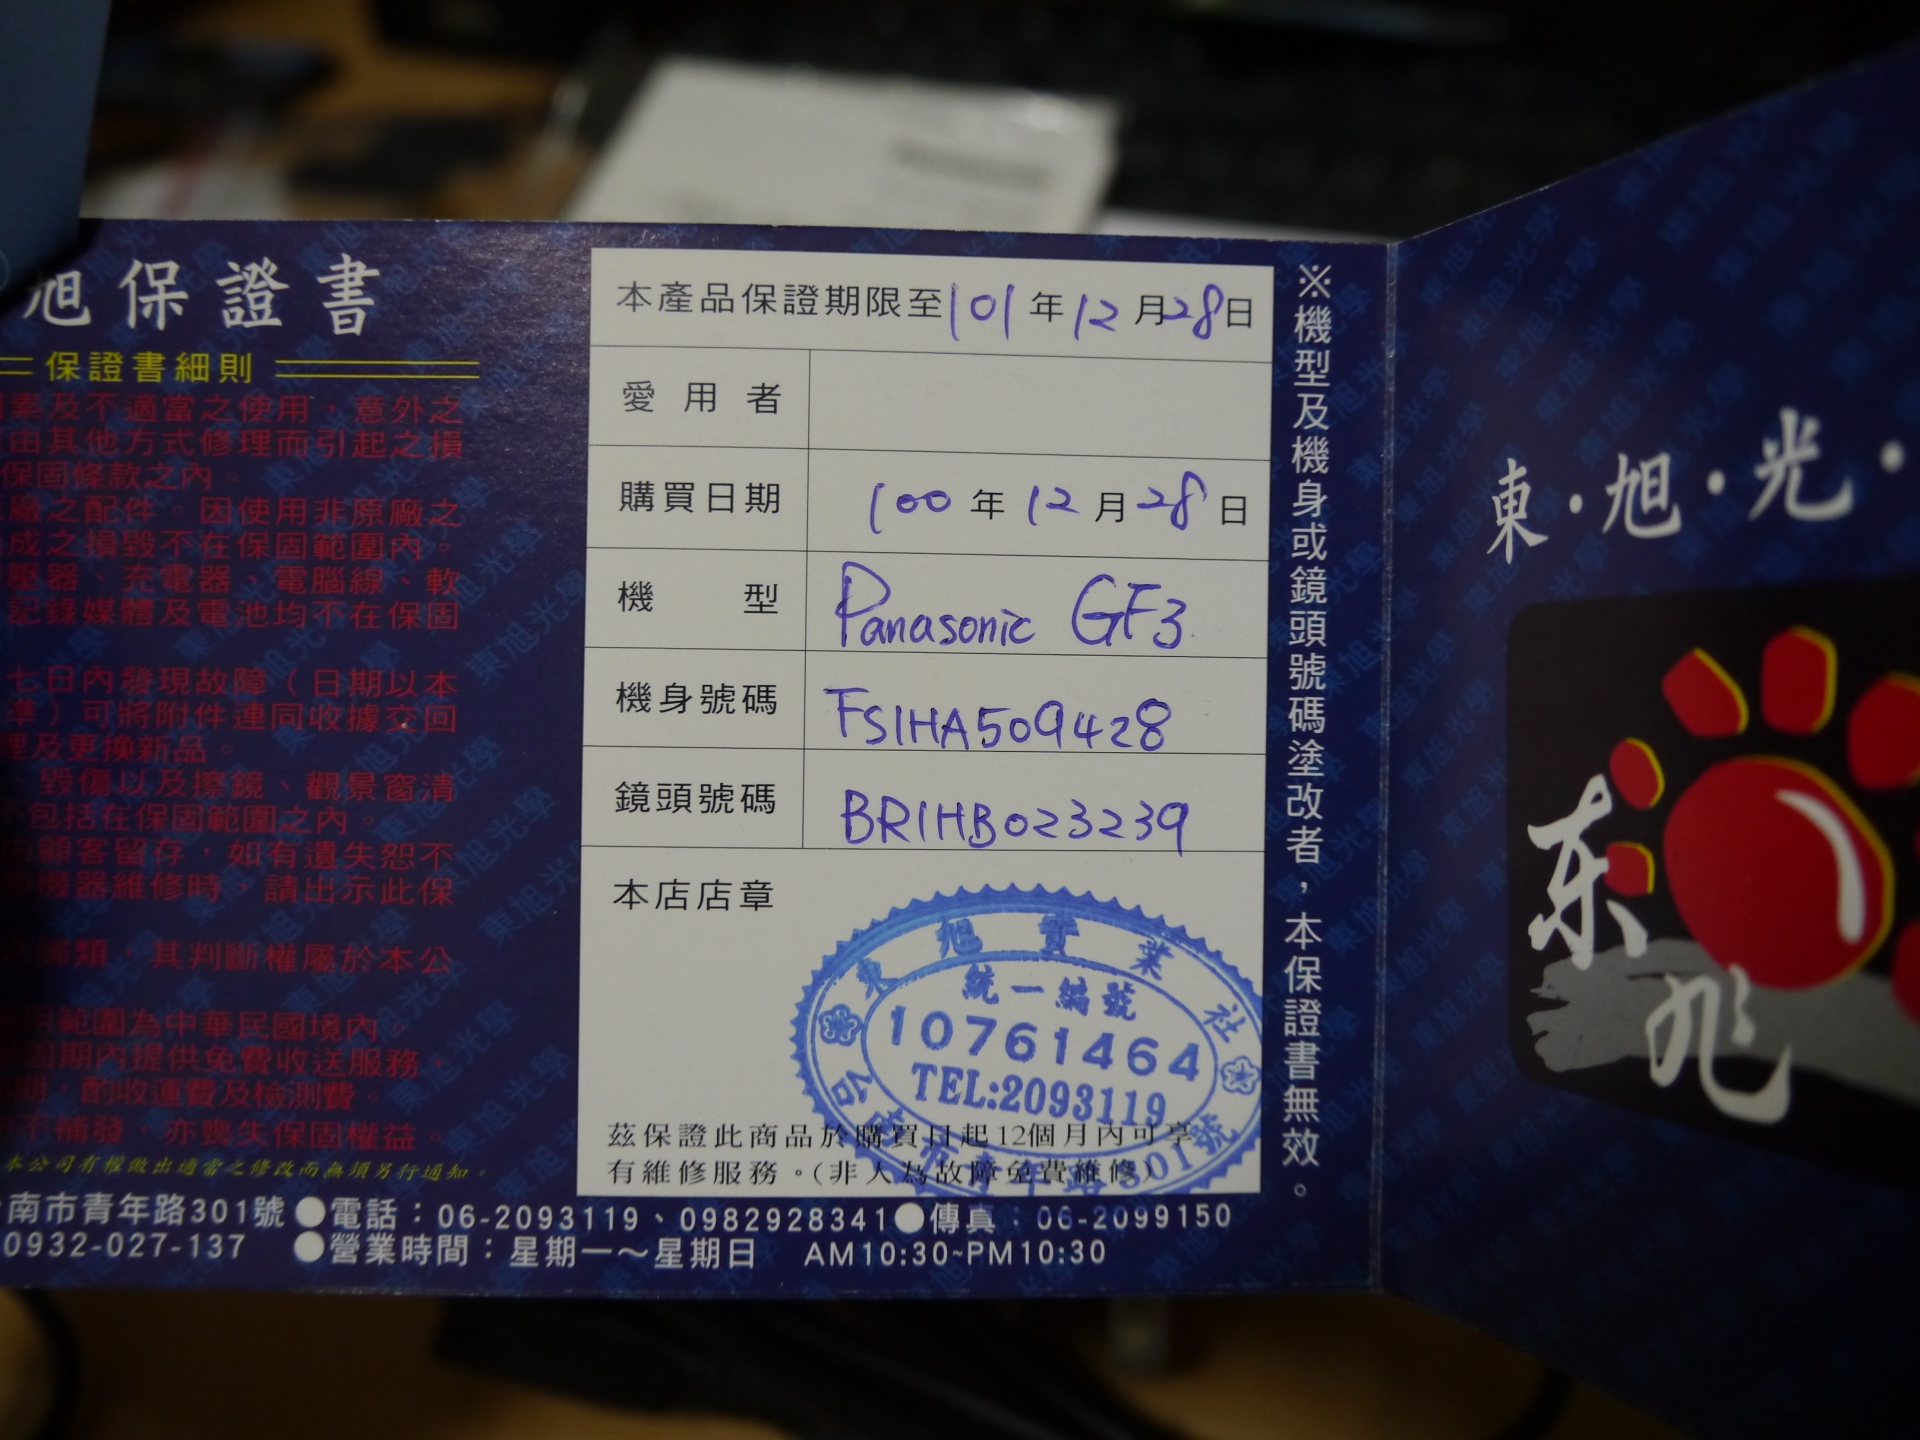 旭保證書
保證書細則
素及不適當之使用，意外之
由其他方式修理而引起之損
保固條款之內。
廠之配件。因使用非原廠之
成之損毀不在保固範圍內。
壓器、充電器、電腦線、軟
記錄媒體及電池均不在保固
七日內發現故障（日期以本
準）可將附件連同收據交回
理及更換新品。
、毀傷以及擦鏡、觀景窗清
包括在保固範圍之內。
顧客留存，如有遺失恕不
機器維修時，請出示此保
類，其判斷權屬於本公
範圍為中華民國境內。
固期內提供免費收送服務，
期，酌收運費及檢測費。
不補發，亦喪失保固權益。
本公司有權做出適當之修改而無須另行通知。
南市青年路301號●電話：06-2093119、0982928341●傳真：06-2099150
0932-027-137 ●營業時間：星期一～星期日 AM10:30~PM10:30
本產品保證期限至101年12月28日
愛用者
購買日期 100年12月28日
機型 Panasonic GF3
機身號碼 FS1HA509428
鏡頭號碼 BR1HB023239
本店店章
東旭實業社
統一編號
10761464
TEL:2093119
台南市青年路301號
茲保證此商品於購買日起12個月內可享
有維修服務。(非人為故障免費維修)
※機型及機身或鏡頭號碼塗改者，本保證書無效。
東・旭・光・
东旭